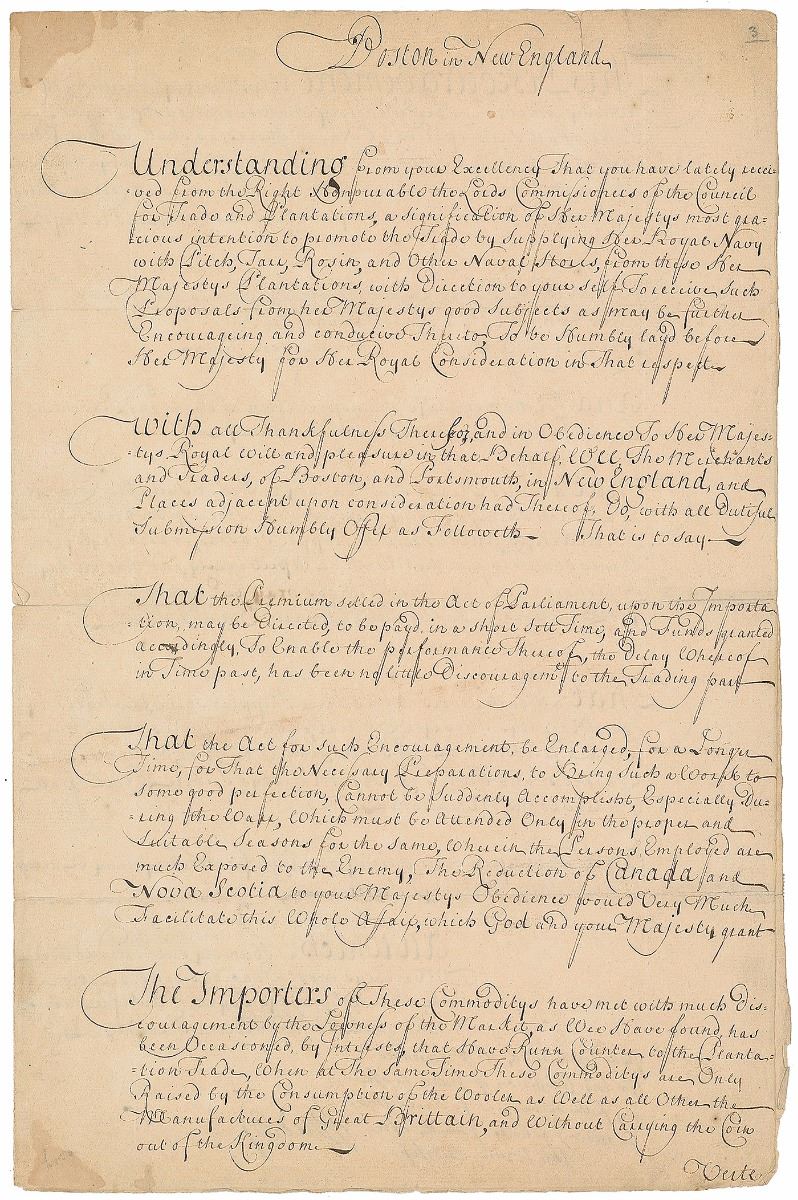 3
Boston in New England
Understanding from your Excellency That you have lately recei=
=ved from the Right Honourable the Lords Commissioners of the Council
for Trade and Plantations, a signification of Her Majestys most gra=
=cious intention to promote the Trade by supplying Her Royal Navy
with Pitch, Tarr, Rosin, and Other Naval Stores, from these Her
Majestys Plantations, with Direction to your self To receive such
Proposals from her Majestys good Subjects as may be further
Encourageing and conducive Thereto, To be Humbly layd before
Her Majesty for Her Royal Consideration in That respect
With all Thankfulness Therefor, and in Obedience To Her Majes=
=tys Royal Will and pleasure in that Behalf, Wee, The Merchants
and Traders, of Boston, and Portsmouth, in New England, and
Places adjacent upon consideration had Thereof, Do, with all Dutiful
Submission Humbly Offer as Followeth – That is to say
That the Premium setled in the Act of Parliament, upon the Importa
=tion, may be Directed, to be payd, in a short sett Time, and Funds granted
accordingly, To Enable the performance Thereof, the Delay Whereof
in Time past, has been no little Discouragemt to the Trading part
That the Act for such Encouragement, be Enlarged, for a Longer
Time, for That the Necessary Preparations, to Bring Such a Work to
some good perfection, Cannot be Suddenly Accomplisht, Especially Du=
=ring the Warr, Which must be Attended Only in the proper and
Suitable Seasons for the same, Wherein the Persons Employed are
much Exposed to the Enemy, The Reduction of Canada and
Nova Scotia to your Majestys Obedience would Very Much
Facilitate this Whole Affair, which God and your Majesty grant
The Importers of These Commoditys have met with much Dis=
couragement by the Lowness of the Market, as Wee Have found, has
been Occasioned, by Interests, that Have Runn Counter to the Planta=
=tion Trade, When at The same Time These Commoditys are Only
Raised by the Consumption of the Woolen as Well as all Other the
Manufactures of Great Brittain, and Without Carrying the Coin
out of the Kingdome
Verte